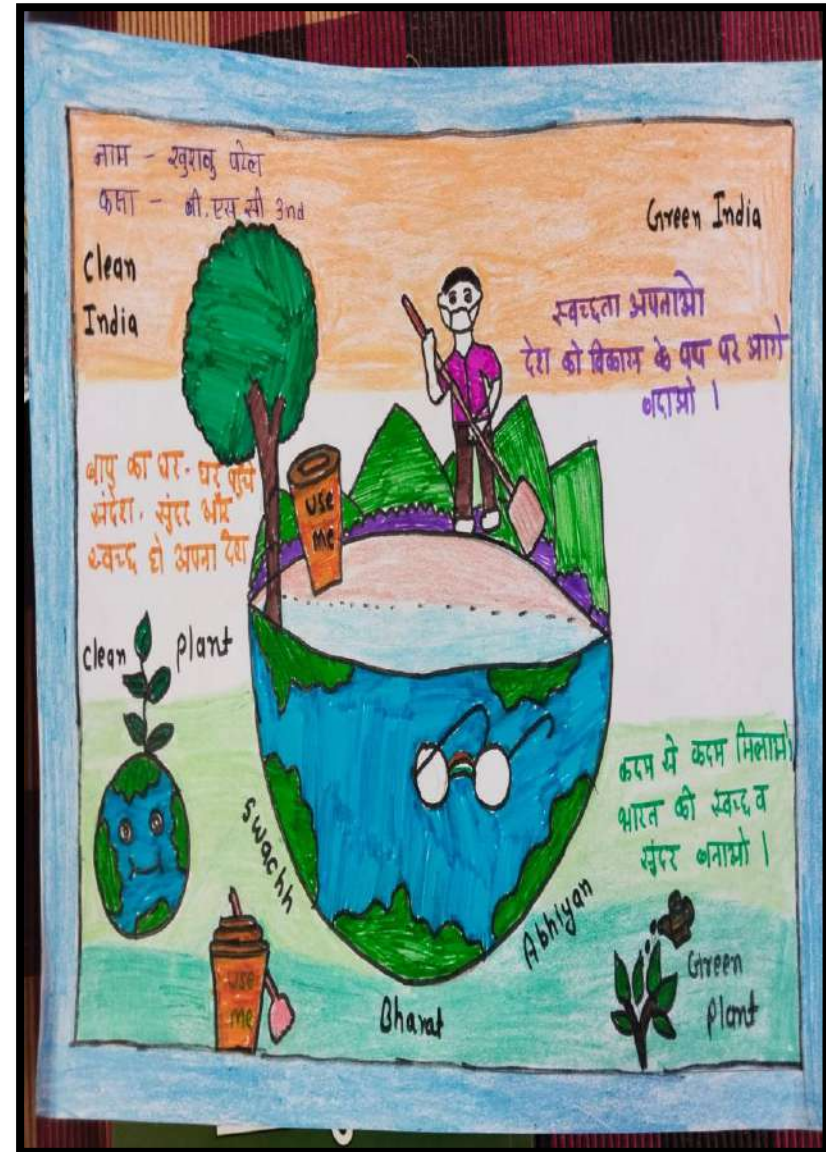 नाम - खुशबु पटेल
कक्षा - बी.एस.सी 3nd
Clean
India
Green India
स्वच्छता अपनाओ
देश को विकास के पथ पर आगे
बढाओ ।
बापु का घर-घर पहुंचे
संदेश, सुंदर और
स्वच्छ हो अपना देश
use
me
Clean plant
कदम से कदम मिलाओ
भारत को स्वच्छ व
सुंदर बनाओ ।
Swachh
Bharat
Abhiyan
use
me
Green
plant